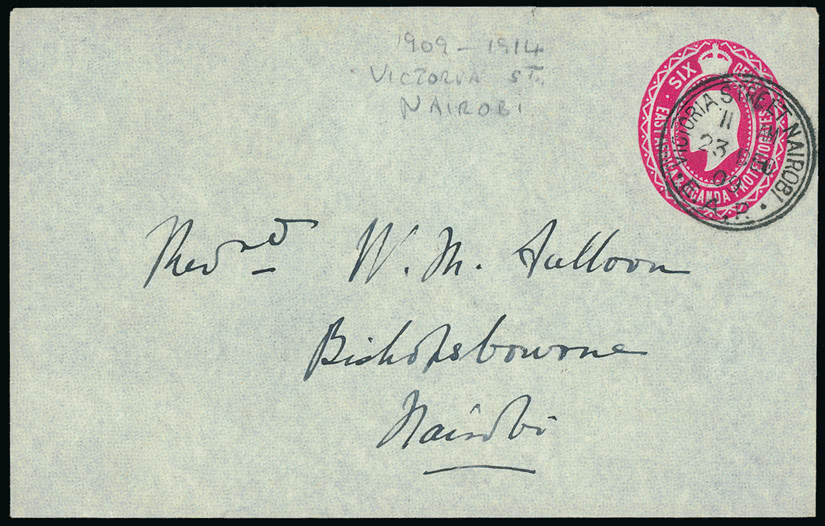 1909 - 1914
VICTORIA ST.
NAIROBI
SIX
EAST AFRICA
UGANDA PROTECTORATES
VICTORIA STREET, NAIROBI
11
23 DE
09
E.A.P.
Revrd W. M.
Bishopsbourne
Nairobi